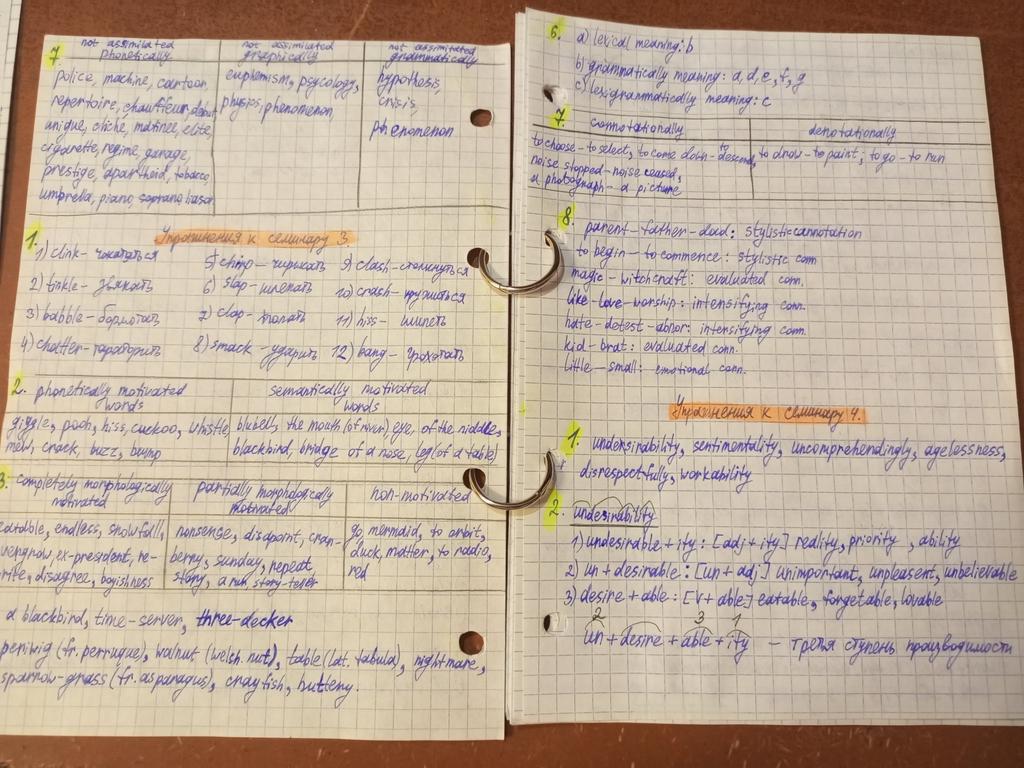 7. not assimilated phonetically
not assimilated graphically
not assimilated grammatically
police, machine, cartoon,
repertoire, chauffeur, debut
unique, cliche, matinee, elite,
cigarette, regime, garage,
prestige, apartheid, tobacco,
umbrella, piano, soprano,
euphemism, psycology,
physics, phenomenon,
hypothesis,
crisis,
phenomenon
Упражнения к семинару 3.
1. 1) clink – чокаться
2) tinkle – звякать
3) babble – бормотать
4) chatter – тараторить
5) chirp – чирикать
6) slap – шлепать
7) clap – хлопать
8) smack – ударить
9) clash – столкнуться
10) crash – крушиться
11) hiss – шипеть
12) bang – грохотать
2. phonetically motivated words
semantically motivated words
giggle, pooh, hiss, cuckoo, whistle,
mew, crack, buzz, bump
blubell, the mouth (of river), eye, of the niddle,
blackbird, bridge of a nose, leg (of a table)
3. completely morphologically motivated
partially morphologically motivated
non-motivated
eatable, endless, snowfall,
overgrow, ex-president, re-
write, disagree, boyishness
nonsense, disapoint, cran-
berry, sunday, repeat,
story, a run, story-teller
go, mermaid, to orbit,
duck, matter, to radio,
red
a blackbird, time-server, three-decker
periwig (fr. perruque), walnut (welsh. nut), table (lat. tabula), nightmare,
sparrow-grass (fr. asparagus), crayfish, buttery.
6. a) lexical meaning: b
b) grammatically meaning: a, d, e, f, g
c) lexigrammatically meaning: c
7. connotationally
denotationally
to choose – to select, to come down – to descend,
noise stopped – noise ceased,
a photograph – a picture
to draw – to paint; to go – to run
8. parent – father – dad: stylistic connotation
to begin – to commence: stylistic conn
magic – witchcraft: evaluated conn.
like – love – worship: intensifying conn.
hate – detest – abhor: intensifying conn.
kid – brat: evaluated conn.
little – small: emotional conn.
Упражнения к семинару 4.
1. undersirability, sentimentality, uncomprehendingly, agelessness,
disrespectfully, workability
2. undesirability
1) undesirable + ity: [adj + ity] reality, priority, ability
2) un + desirable: [un + adj] unimportant, unpleasent, unbelievable
3) desire + able: [v + able] eatable, forgetable, lovable
2 3 1
un + desire + able + ity – третья ступень производимости